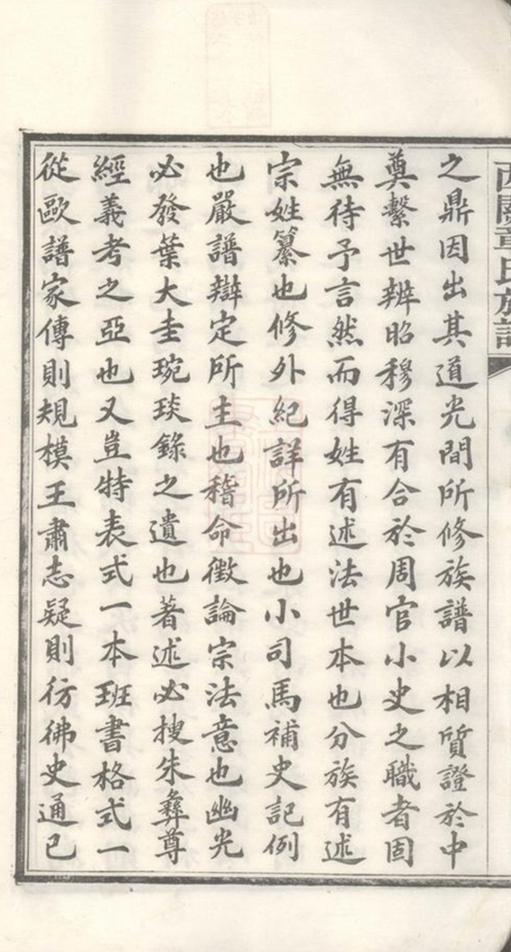 西關章氏族譜
之鼎因出其道光間所修族譜以相質證於中
奠繫世辨昭穆深有合於周官小史之職者固
無待予言然而得姓有述法世本也分族有述
宗姓纂也修外紀詳所出也小司馬補史記例
也嚴譜辯定所主也稽命徵論宗法意也幽光
必發葉大圭琬琰錄之遺也著述必搜朱彝尊
經義考之亞也又豈特表式一本班書格式一
從歐譜家傳則規模王肅志疑則彷彿史通已